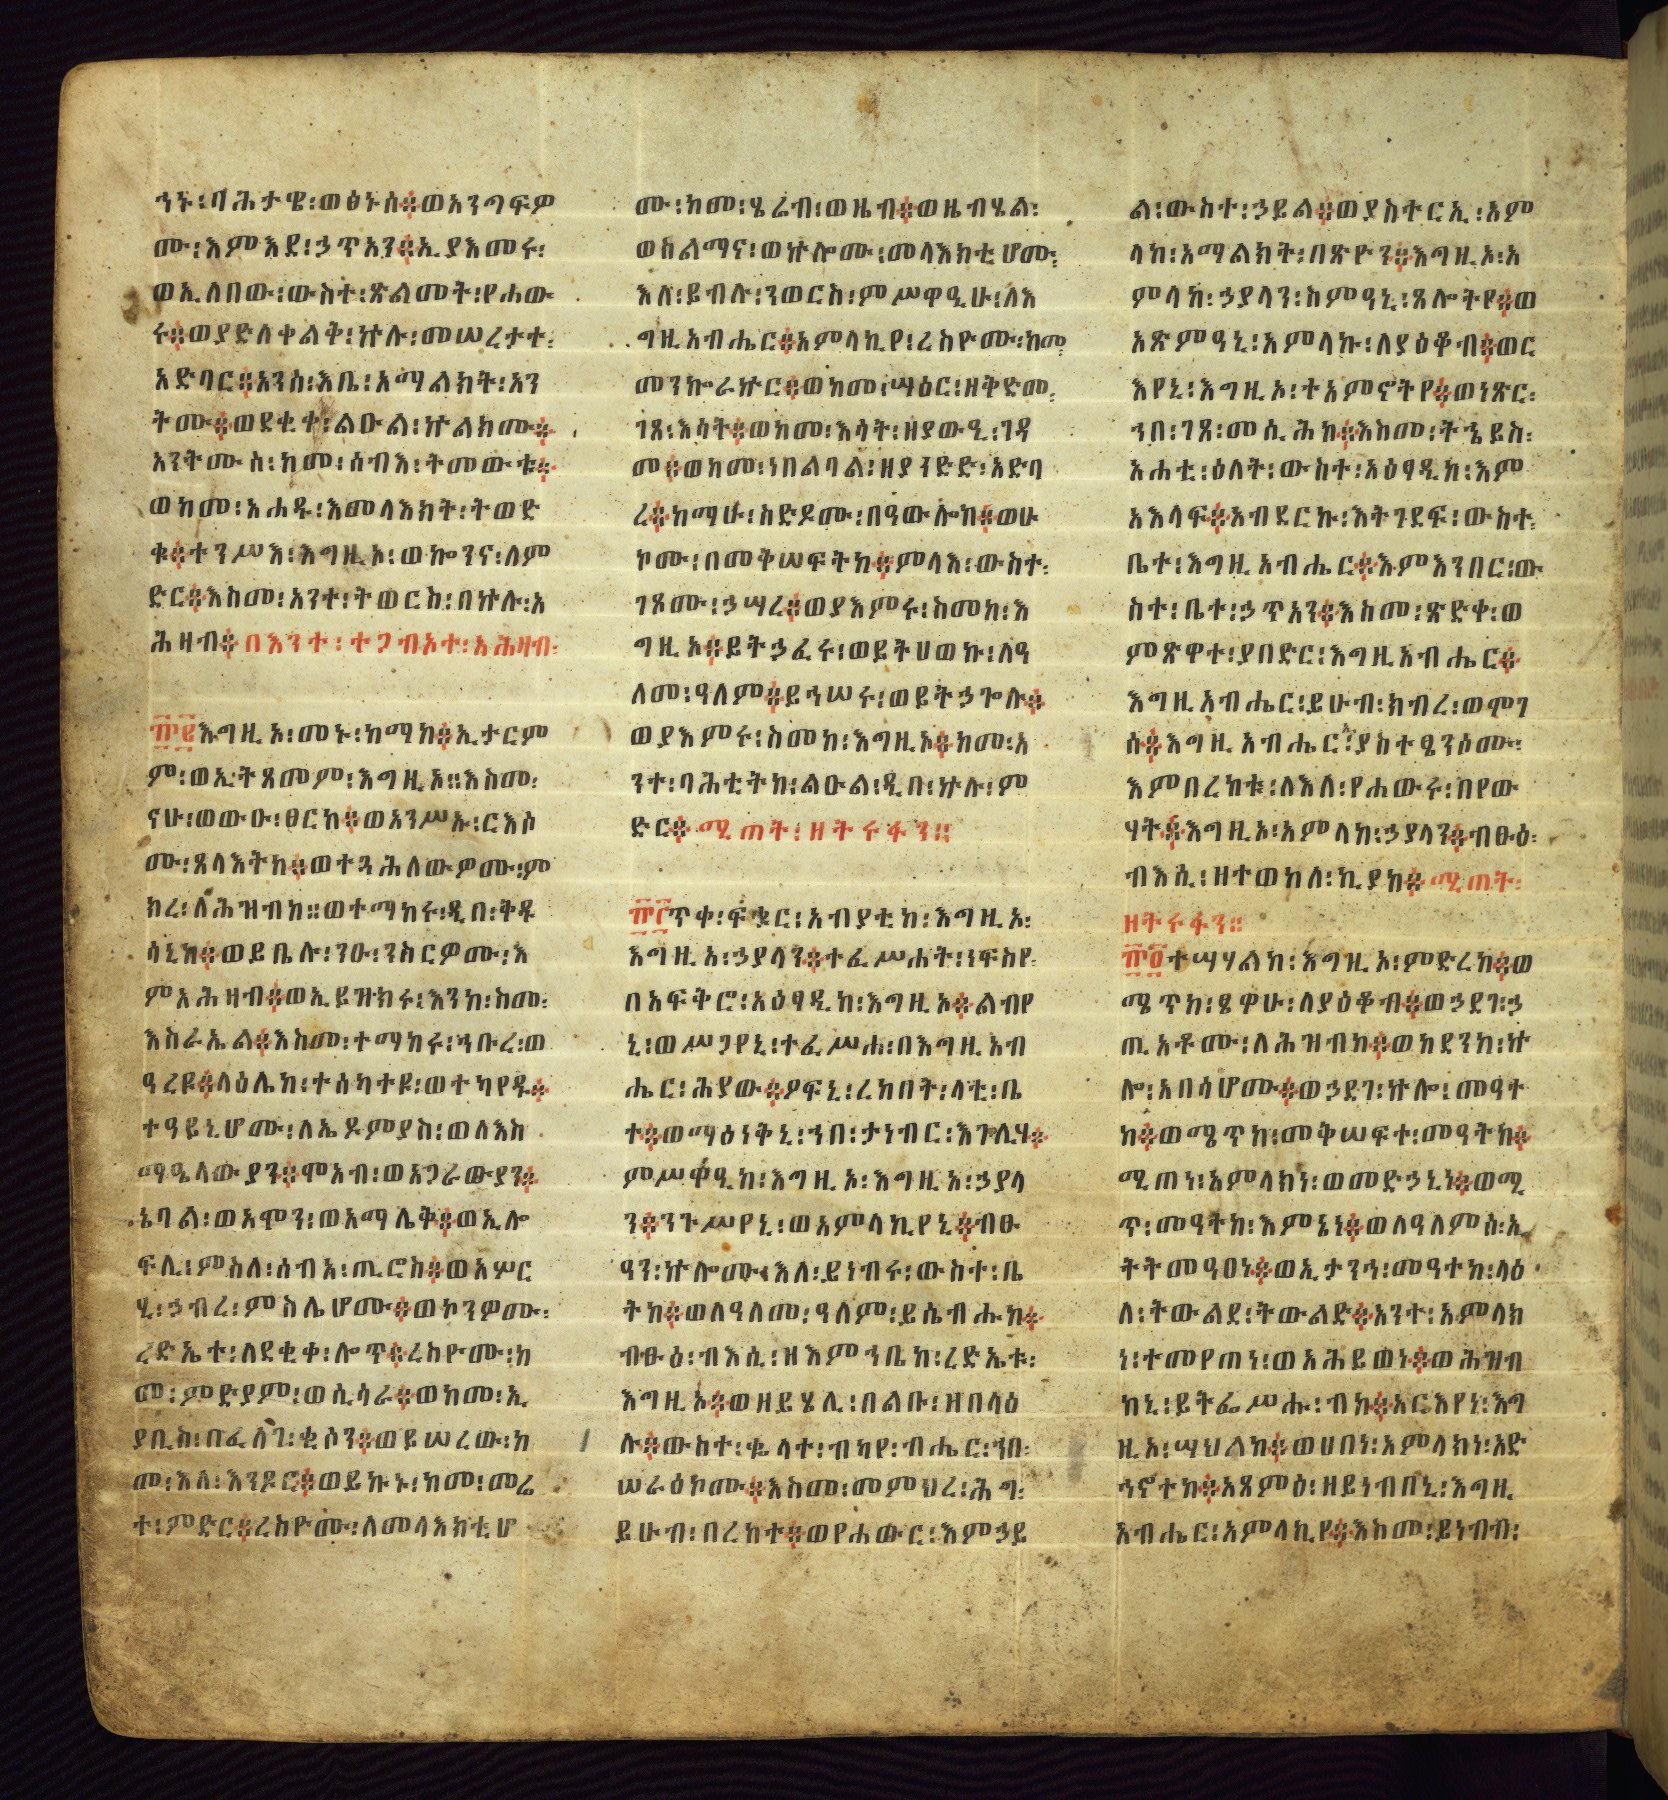 ኀኑ፡ባሕታዌ፡ወፅኑሰ፨ወአንጣፍዎ
ሙ፡እምእደ፡ኃጥአን፨ኢያእመሩ፡
ወኢለበው፡ውስተ፡ጽልመት፡የሐው
ሩ፨ወያድለቀልቅ፡ኵሉ፡መሠረታተ፡
አድባር፨አንሰ፡እቤ፡አማልክት፡አን
ትሙ፨ወደቂቀ፡ልዑል፡ኵልክሙ፨
አንትሙሰ፡ከመ፡ሰብእ፡ትመውቱ፨
ወከመ፡አሐዱ፡እመላእክት፡ትወድ
ቁ፨ተንሥእ፡እግዚኦ፡ወኰንና፡ለም
ድር፨እስመ፡አንተ፡ትወርስ፡በኵሉ፡አ
ሕዛብ፨በእንተ፡ተጋብኦተ፡አሕዛብ፡
፹፪እግዚኦ፡መኑ፡ከማከ፨ኢታርም
ም፡ወኢትጸመም፡እግዚኦ፡፡እስመ፡
ናሁ፡ወውዑ፡ፀርከ፨ወአንሥኡ፡ርእሶ
ሙ፡ጸላእትከ፨ወተጓሕለውዎሙ፡ም
ክረ፡ለሕዝብከ፡፡ወተማከሩ፡ዲበ፡ቅዱ
ሳኒከ፨ወይቤሉ፡ንዑ፡ንሰርዎሙ፡እ
ምአሕዛብ፨ወኢይዝክሩ፡እንከ፡ስመ፡
እስራኤል፨እስመ፡ተማከሩ፡ኅቡረ፡ወ
ዓረዩ፨ላዕሌከ፡ተሰካተዩ፡ወተካየዱ፨
ተዓይኒሆሙ፡ለኤዶምያስ፡ወለእስ
ማዔላውያን፨ሞአብ፡ወአጋራውያን፨
ጌባል፡ወአሞን፡ወአማሌቅ፨ወኢሎ
ፍሊ፡ምስለ፡ሰብአ፡ጢሮስ፨ወአሦር
ሂ፡ኃብረ፡ምስሌሆሙ፨ወኮንዎሙ፡
ረድኤተ፡ለደቂቀ፡ሎጥ፨ረስዮሙ፡ከ
መ፡ምድያም፡ወሲሳራ፨ወከመ፡ኢ
ያቢስ፡በፈለገ፡ቂሶን፨ወይሠረው፡ከ
መ፡እለ፡እንዶር፨ወይኩኑ፡ከመ፡መሬ
ተ፡ምድር፨ረስዮሙ፡ለመላእክቲሆ
ሙ፡ከመ፡ሄሬብ፡ወዜብ፨ወዜብሄል፡
ወስልማና፡ወኵሎሙ፡መላእክቲሆሙ፡
እለ፡ይብሉ፡ንወርስ፡ምሥዋዒሁ፡ለእ
ግዚአብሔር፨አምላኪየ፡ረስዮሙ፡ከመ፡
መንኰራኵር፨ወከመ፡ሣዕር፡ዘቅድመ፡
ገጸ፡እሳት፨ወከመ፡እሳት፡ዘያውዒ፡ገዳ
መ፨ወከመ፡ነበልባል፡ዘያነድድ፡አድባ
ረ፨ከማሁ፡ስድዶሙ፡በዓውሎከ፨ወሁ
ኮሙ፡በመቅሠፍትከ፨ምላእ፡ውስተ፡
ገጾሙ፡ኃሣረ፨ወያእምሩ፡ስመከ፡እ
ግዚኦ፨ይትኃፈሩ፡ወይትሀወኩ፡ለዓ
ለመ፡ዓለም፨ይኀሠሩ፡ወይትኃጐሉ፨
ወያእምሩ፡ስመከ፡እግዚኦ፨ከመ፡አ
ንተ፡ባሕቲትከ፡ልዑል፡ዲበ፡ኵሉ፡ም
ድር፨ሚጠት፡ዘትሩፋን፡፡
፹፫ጥቀ፡ፍቁር፡አብያቲከ፡እግዚኦ፡
እግዚአ፡ኃያላን፨ተፈሥሐት፡ነፍስየ፡
በአፍቅሮ፡አዕፃዲከ፡እግዚኦ፨ልብየ
ኒ፡ወሥጋየኒ፡ተፈሥሐ፡በእግዚአብ
ሔር፡ሕያው፨ዖፍኒ፡ረከበት፡ላቲ፡ቤ
ተ፨ወማዕነቅኒ፡ኀበ፡ታነብር፡እጐሊሃ፨
ምሥዋዒከ፡እግዚኦ፡እግዚአ፡ኃያላ
ን፨ንጉሥየኒ፡ወአምላኪየኒ፨ብፁ
ዓን፡ኵሎሙ፡እለ፡ይነብሩ፡ውስተ፡ቤ
ትከ፨ወለዓለመ፡ዓለም፡ይሴብሑከ፨
ብፁዕ፡ብእሲ፡ዘእምኀቤከ፡ረድኤቱ፡
እግዚኦ፨ወዘይሄሊ፡በልቡ፡ዘበላዕ
ሉ፨ውስተ፡ቈላተ፡ብካየ፡ብሔር፡ኀበ፡
ሠራዕኮሙ፨እስመ፡መምህረ፡ሕግ፡
ይሁብ፡በረከተ፨ወየሐውር፡እምኃይ
ል፡ውስተ፡ኃይል፨ወያስተርኢ፡አም
ላከ፡አማልክት፡በጽዮን፨እግዚኦ፡አ
ምላከ፡ኃያላን፡ስምዓኒ፡ጸሎትየ፨ወ
አጽምዓኒ፡አምላኩ፡ለያዕቆብ፨ወር
እየኒ፡እግዚኦ፡ተአምኖትየ፨ወነጽር፡
ኀበ፡ገጸ፡መሲሕከ፨እስመ፡ትኄይስ፡
አሐቲ፡ዕለት፡ውስተ፡አዕፃዲከ፡እም
አእላፍ፨አብደርኩ፡እትገደፍ፡ውስተ፡
ቤተ፡እግዚአብሔር፨እምእንበር፡ው
ስተ፡ቤተ፡ኃጥአን፨እስመ፡ጽድቀ፡ወ
ምጽዋተ፡ያበድር፡እግዚአብሔር፨
እግዚአብሔር፡ይሁብ፡ክብረ፡ወሞገ
ሰ፨እግዚአብሔር፡ያስተፄንዕሙ፡፡
እምበረከቱ፡ለእለ፡የሐውሩ፡በየው
ሃት፨እግዚኦ፡አምላከ፡ኃያላን፨ብፁዕ፡
ብእሲ፡ዘተወከለ፡ኪያከ፨ሚጠት፡
ዘትሩፋን፡፡
፹፬ተሣሃልከ፡እግዚኦ፡ምድረከ፨ወ
ሜጥከ፡ፄዋሁ፡ለያዕቆብ፨ወኃደገ፡ኃ
ጢአቶሙ፡ለሕዝብከ፨ወከደንከ፡ኵ
ሎ፡አበሳሆሙ፨ወኃደገ፡ኵሎ፡መዓተ
ከ፨ወሜጥከ፡መቅሠፍተ፡መዓትከ፨
ሚጠነ፡አምላክነ፡ወመድኃኒነ፨ወሚ
ጥ፡መዓትከ፡እምኔነ፨ወለዓለምሰ፡ኢ
ትትመዓዐነ፨ወኢታንኅ፡መዓተከ፡ላዕ
ለ፡ትውልደ፡ትውልድ፨አንተ፡አምላክ
ነ፡ተመየጠነ፡ወአሕይወነ፨ወሕዝብ
ከኒ፡ይትፌሥሑ፡ብከ፨አርእየነ፡እግ
ዚኦ፡ሣህልከ፨ወሀበነ፡አምላክነ፡አድ
ኅኖተከ፨አጸምዕ፡ዘይነብበኒ፡እግዚ
አብሔር፡አምላኪየ፨እስመ፡ይነብብ፡